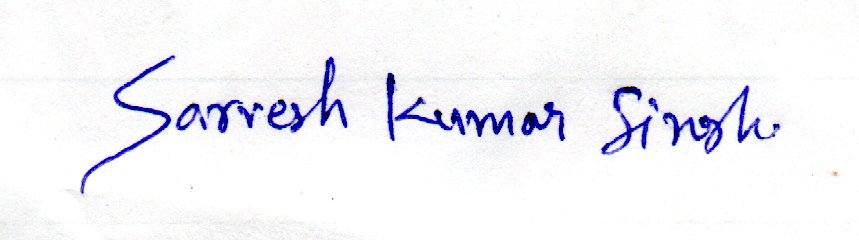 Sarvesh Kumar Singh